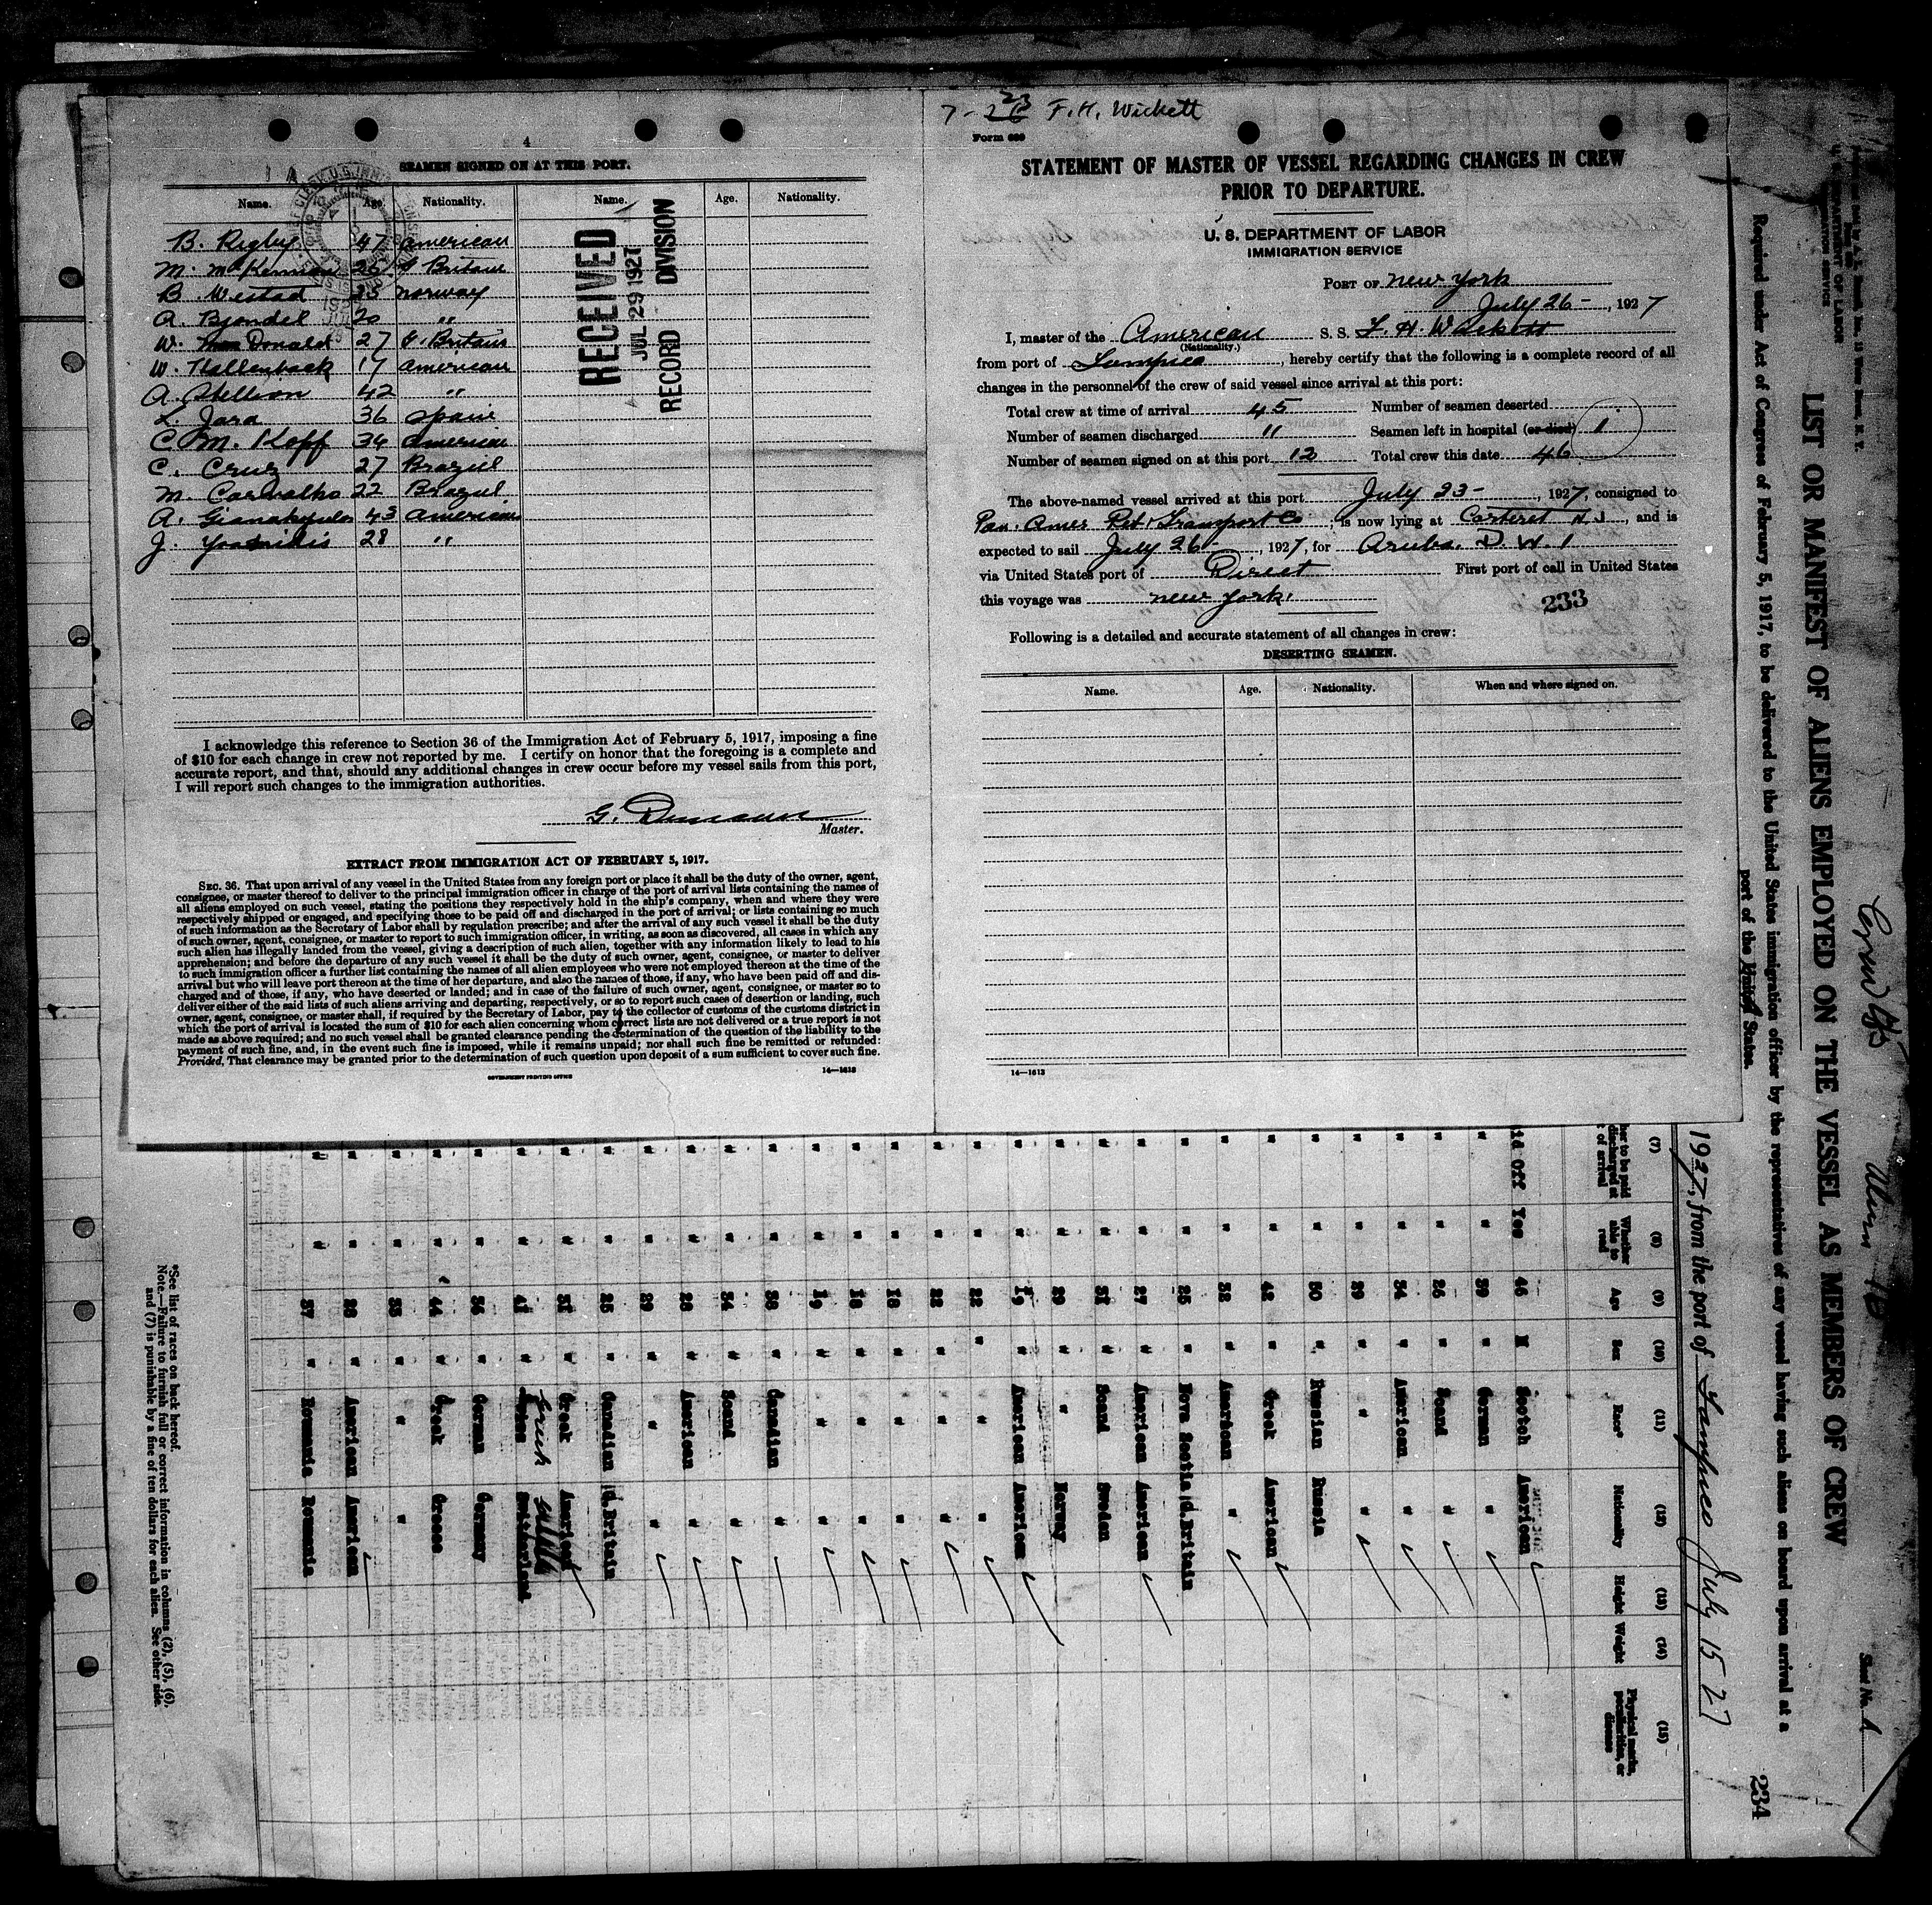 4
SEAMEN SIGNED ON AT THIS PORT.
Name. Age. Nationality. Name. Age. Nationality.
B. Rigby 47 American
M. McKernian 26 G Britain
B Westad 23 Norway
A. Bjondel 20 "
W. Donald 27 G. Britain
W. Hallenback 17 American
A. Stellion 42 "
L. Jara 36 Spain
C M. Kloff 34 American
C. Cruz 27 Brazil
M. Carvalho 22 Brazil.
A. Gianakopulos 43 American
J. 28 "
RECEIVED
JUL 29 1927
RECORD DIVISION
I acknowledge this reference to Section 36 of the Immigration Act of February 5, 1917, imposing a fine
of $10 for each change in crew not reported by me. I certify on honor that the foregoing is a complete and
accurate report, and that, should any additional changes in crew occur before my vessel sails from this port,
I will report such changes to the immigration authorities.
G.
Master.
EXTRACT FROM IMMIGRATION ACT OF FEBRUARY 5, 1917.
SEC. 36. That upon arrival of any vessel in the United States from any foreign port or place it shall be the duty of the owner, agent,
consignee, or master thereof to deliver to the principal immigration officer in charge of the port of arrival lists containing the names of
all aliens employed on such vessel, stating the positions they respectively hold in the ship's company, when and where they were
respectively shipped or engaged, and specifying those to be paid off and discharged in the port of arrival; or lists containing so much
of such information as the Secretary of Labor shall by regulation prescribe; and after the arrival of any such vessel it shall be the duty
of such owner, agent, consignee, or master to report to such immigration officer, in writing, as soon as discovered, all cases in which any
such alien has illegally landed from the vessel, giving a description of such alien, together with any information likely to lead to his
apprehension; and before the departure of any such vessel it shall be the duty of such owner, agent, consignee, or master to deliver
to such immigration officer a further list containing the names of all alien employees who were not employed thereon at the time of the
arrival but who will leave port thereon at the time of her departure, and also the names of those, if any, who have been paid off and dis-
charged and of those, if any, who have deserted or landed; and in case of the failure of such owner, agent, consignee, or master so to
deliver either of the said lists of such aliens arriving and departing, respectively, or so to report such cases of desertion or landing, such
owner, agent, consignee, or master shall, if required by the Secretary of Labor, pay to the collector of customs of the customs district in
which the port of arrival is located the sum of $10 for each alien concerning whom correct lists are not delivered or a true report is not
made as above required; and no such vessel shall be granted clearance pending the determination of the question of the liability to the
payment of such fine, and, in the event such fine is imposed, while it remains unpaid; nor shall such fine be remitted or refunded:
Provided, That clearance may be granted prior to the determination of such question upon deposit of a sum sufficient to cover such fine.
GOVERNMENT PRINTING OFFICE
14—1613
7-26 23 F. H. Wickett
Form 689
STATEMENT OF MASTER OF VESSEL REGARDING CHANGES IN CREW
PRIOR TO DEPARTURE.
U. S. DEPARTMENT OF LABOR
IMMIGRATION SERVICE
PORT OF New York
July 26-, 1927
I, master of the American S. S. F. H. Wickett
(Nationality.)
from port of Tampico, hereby certify that the following is a complete record of all
changes in the personnel of the crew of said vessel since arrival at this port:
Total crew at time of arrival 45 Number of seamen deserted
Number of seamen discharged 11 Seamen left in hospital (or died) 1
Number of seamen signed on at this port 12 Total crew this date 46
The above-named vessel arrived at this port July 23-, 1927, consigned to
Pan. Amer Pet. Transport Co, is now lying at Carteret N J, and is
expected to sail July 26-, 1927, for Aruba. D. W. I
via United States port of Direct First port of call in United States
this voyage was New York.
233
Following is a detailed and accurate statement of all changes in crew:
DESERTING SEAMEN.
Name. Age. Nationality. When and where signed on.
14—1613
Sheet No. 1
LIST OR MANIFEST OF ALIENS EMPLOYED ON THE VESSEL AS MEMBERS OF CREW
Required under Act of Congress of February 5, 1917, to be delivered to the United States immigration officer by the representatives of any vessel having such aliens on board upon arrival at a
port of the United States.
U. S. DEPARTMENT OF LABOR
IMMIGRATION SERVICE
Crew 45
Alien 18
1927, from the port of Tampico July 15 27
234
(7) (8) (9) (10) (11) (12) (13) (14) (15)
Whether able to read Age Sex Race* Nationality Height Weight Physical marks, peculiarities, or disease
id Off Yes 46 M Scotch American
" " 39 " German "
" " 26 " Scand "
" " 34 " American "
" " 29 " " "
" " 50 " Russian Russia
" " 42 " Greek American
" " 32 " American "
" " 25 " Nova Scotia G.Britain
" " 27 " American American
" " 31 " Scand Sweden
" " 29 " " Norway
" " 19 " American American
" " 22 " " "
" " 22 " " "
" " 18 " " "
" " 18 " " "
" " 19 " " "
" " 38 " Canadian "
" " 34 " Scand "
" " 28 " American "
" " 29 " " "
" " 25 " Canadian G.Britain
" " 31 " Greek American
" " 41 " Greek Switzerland
" " 36 " German Germany
" " 44 " Greek Greece
" " 33 " " "
" " 28 " American American
" " 37 " Roumania Roumania
*See list of races on back hereof.
Note.—Failure to furnish full or correct information in columns (2), (5), (6),
and (7) is punishable by a fine of ten dollars for each alien. See other side.